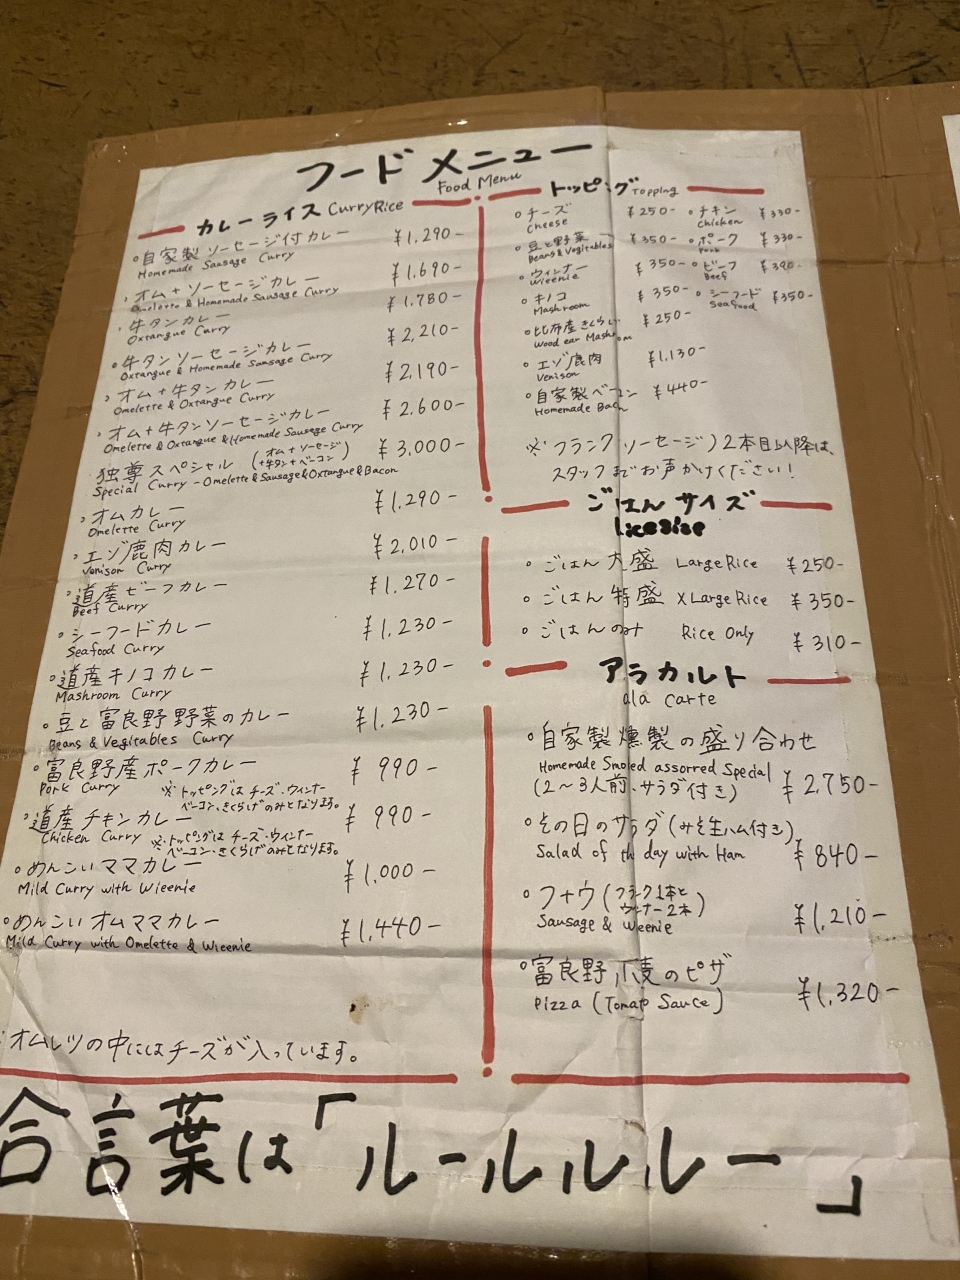 フードメニュー
Food Menu
カレーライス CurryRice
・自家製ソーセージ付カレー ¥1,290-
Homemade Sausage Curry
・オム+ソーセージカレー ¥1,690-
Omelette & Homemade Sausage Curry
・牛タンカレー ¥1,780-
Oxtangue Curry
・牛タンソーセージカレー ¥2,210-
Oxtangue & Homemade Sausage Curry
・オム+牛タンカレー ¥2,190-
Omelette & Oxtangue Curry
・オム+牛タンソーセージカレー ¥2,600-
Omelette & Oxtangue & Homemade Sausage Curry
独尊スペシャル (オム+ソーセージ+牛タン+ベーコン) ¥3,000-
Special Curry - Omelette & Sausage & Oxtangue & Bacon
・オムカレー ¥1,290-
Omelette Curry
・エゾ鹿肉カレー ¥2,010-
Venison Curry
・道産ビーフカレー ¥1,270-
Beef Curry
・シーフードカレー ¥1,230-
Seafood Curry
・道産キノコカレー ¥1,230-
Mashroom Curry
・豆と富良野野菜のカレー ¥1,230-
Beans & Vegitables Curry
・富良野産ポークカレー ¥990-
Pork Curry ※トッピングはチーズ・ウィンナー
ベーコン、きくらげのみとなります。
・道産チキンカレー ¥990-
Chicken Curry ※トッピングはチーズ・ウィンナー
ベーコン・きくらげのみとなります。
・めんこいママカレー ¥1,000-
Mild Curry with Wieenie
・めんこいオムママカレー ¥1,440-
Mild Curry with Omelette & Wieenie
オムレツの中にはチーズが入っています。
トッピング Topping
・チーズ ¥250-
Cheese
・豆と野菜 ¥350-
Beans & Vegitables
・ウィンナー ¥350-
Wieenie
・キノコ ¥350-
Mashroom
・比布産きくらげ ¥250-
Wood ear Mashroom
・エゾ鹿肉 ¥1,130-
Venison
・自家製ベーコン ¥440-
Homemade Bacn
・チキン ¥330-
Chicken
・ポーク ¥330-
Pork
・ビーフ ¥390-
Beef
・シーフード ¥350-
Seafood
※フランクソーセージ)2本目以降は、
スタッフまでお声かけください!
ごはんサイズ
・ごはん大盛 Large Rice ¥250-
・ごはん特盛 XLarge Rice ¥350-
・ごはんのみ Rice Only ¥310-
アラカルト
ala carte
・自家製燻製の盛り合わせ
Homemade Smoked assorred Special
(2〜3人前、サラダ付き) ¥2,750-
・その日のサラダ(みそ生ハム付き)
Salad of th day with Ham ¥840-
・フ+ウ(フランク1本とウィンナー2本)
Sausage & Weenie ¥1,210-
・富良野小麦のピザ
Pizza (Tomato Sauce) ¥1,320-
合言葉は「ルールルルー」